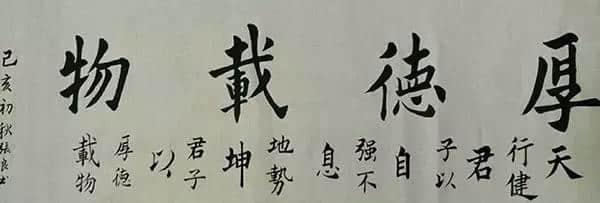 厚德載物
天行健君子以自强不息地勢坤君子以厚德載物
己亥初秋张良